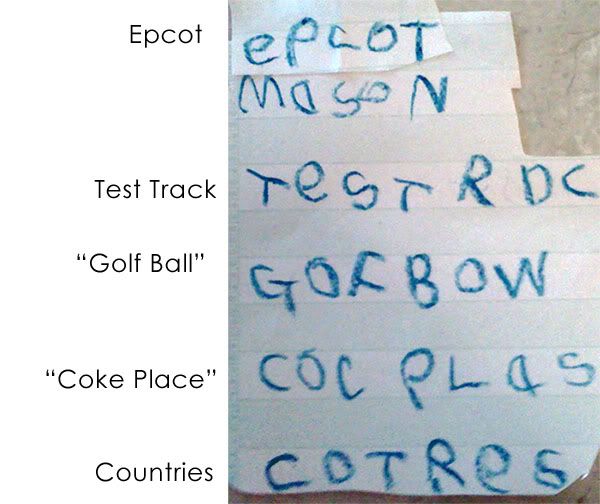 Epcot ePCOT
MaSoN
Test Track TeST RDC
“Golf Ball” GOFBOW
“Coke Place” COC PLaS
Countries COTReS